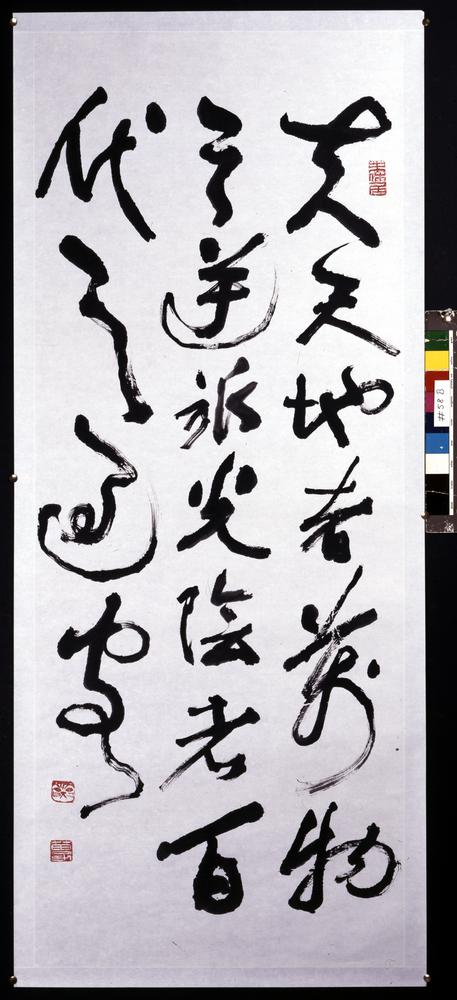 夫天地者萬物
之逆旅光陰者百
代之過客
#58 B